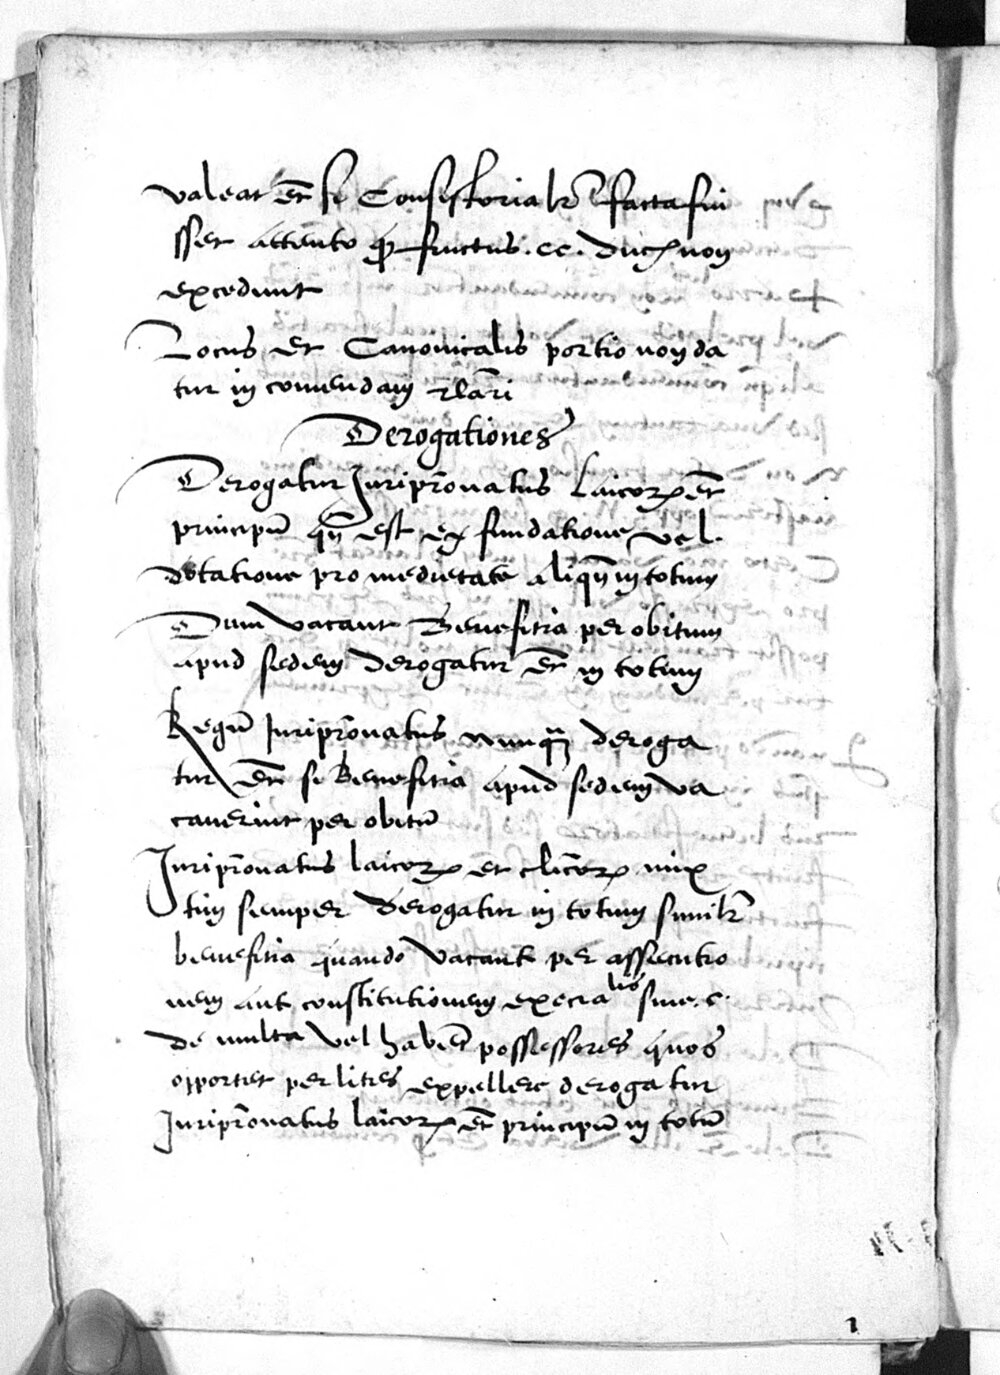 valeat et̃ si Consistorialr̃ facta fui
sset attento q̃ fructus .cc. duc̃ non
excedunt
Locus et Canonicalis portio non da
tur in comendam
Derogationes
Derogatur Juripr̃onatus laicorꝝ et̃
principũ qñ est ex fundatione vel
dotatione pro medietate aliqñ in totum
Dum vacant Benefitia per obitum
apud sedem derogatur et̃ in totum
Regũ Juripr̃onatus nunq̃ deroga
tur et̃ si Benefitia apud sedem va
caverint per obitũ
Juripr̃onatus laicorꝝ et cl̃icorꝝ mix
tim semper derogatur in totum similr̃
benefitia quando vacant per assecutio
nem aut constitutionem execrabilis sive .c.
de multa vel habeñt possessores quos
opportet per lites expellere derogatur
Juripr̃onatus laicorꝝ et̃ principũ in totũ
1